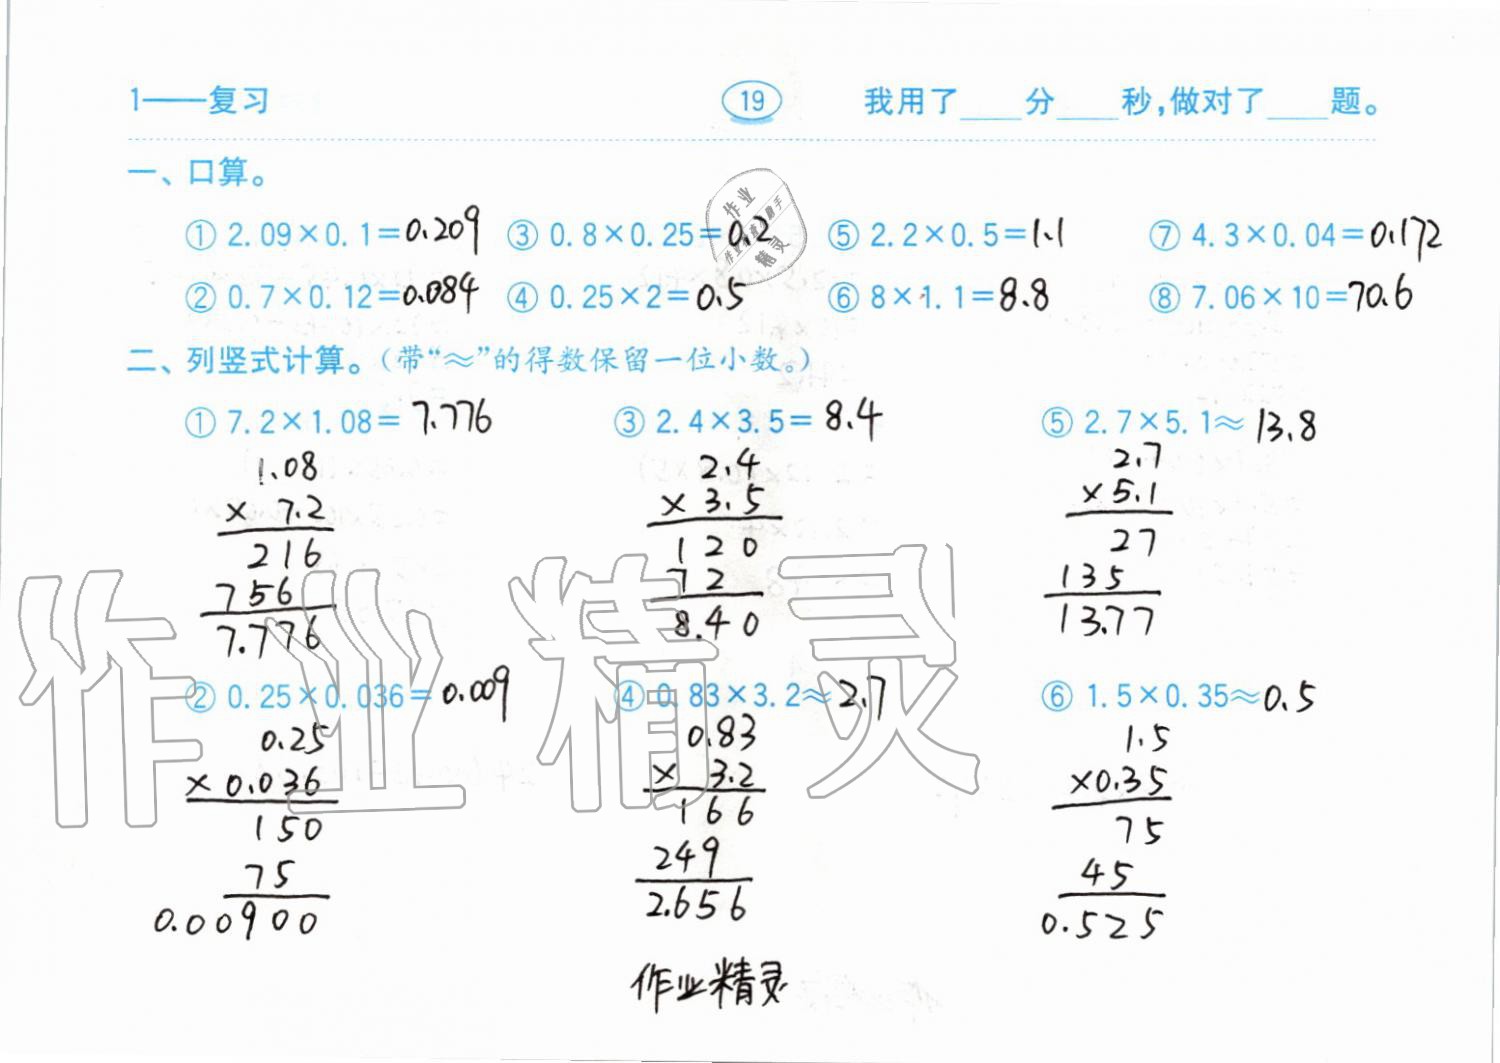 1——复习 19 我用了____分____秒,做对了____题。
一、口算。
① 2.09×0.1=0.209 ③ 0.8×0.25=0.2 ⑤ 2.2×0.5=1.1 ⑦ 4.3×0.04=0.172
② 0.7×0.12=0.084 ④ 0.25×2=0.5 ⑥ 8×1.1=8.8 ⑧ 7.06×10=70.6
二、列竖式计算。(带“≈”的得数保留一位小数。)
① 7.2×1.08=7.776 ③ 2.4×3.5=8.4 ⑤ 2.7×5.1≈13.8
1.08 2.4 2.7
×7.2 ×3.5 ×5.1
216 120 27
756 72 135
7.776 8.40 13.77
② 0.25×0.036=0.009 ④ 0.83×3.2≈2.7 ⑥ 1.5×0.35≈0.5
0.25 0.83 1.5
×0.036 ×3.2 ×0.35
150 166 75
75 249 45
0.00900 2.656 0.525
作业精灵
作业精灵
作业
精灵